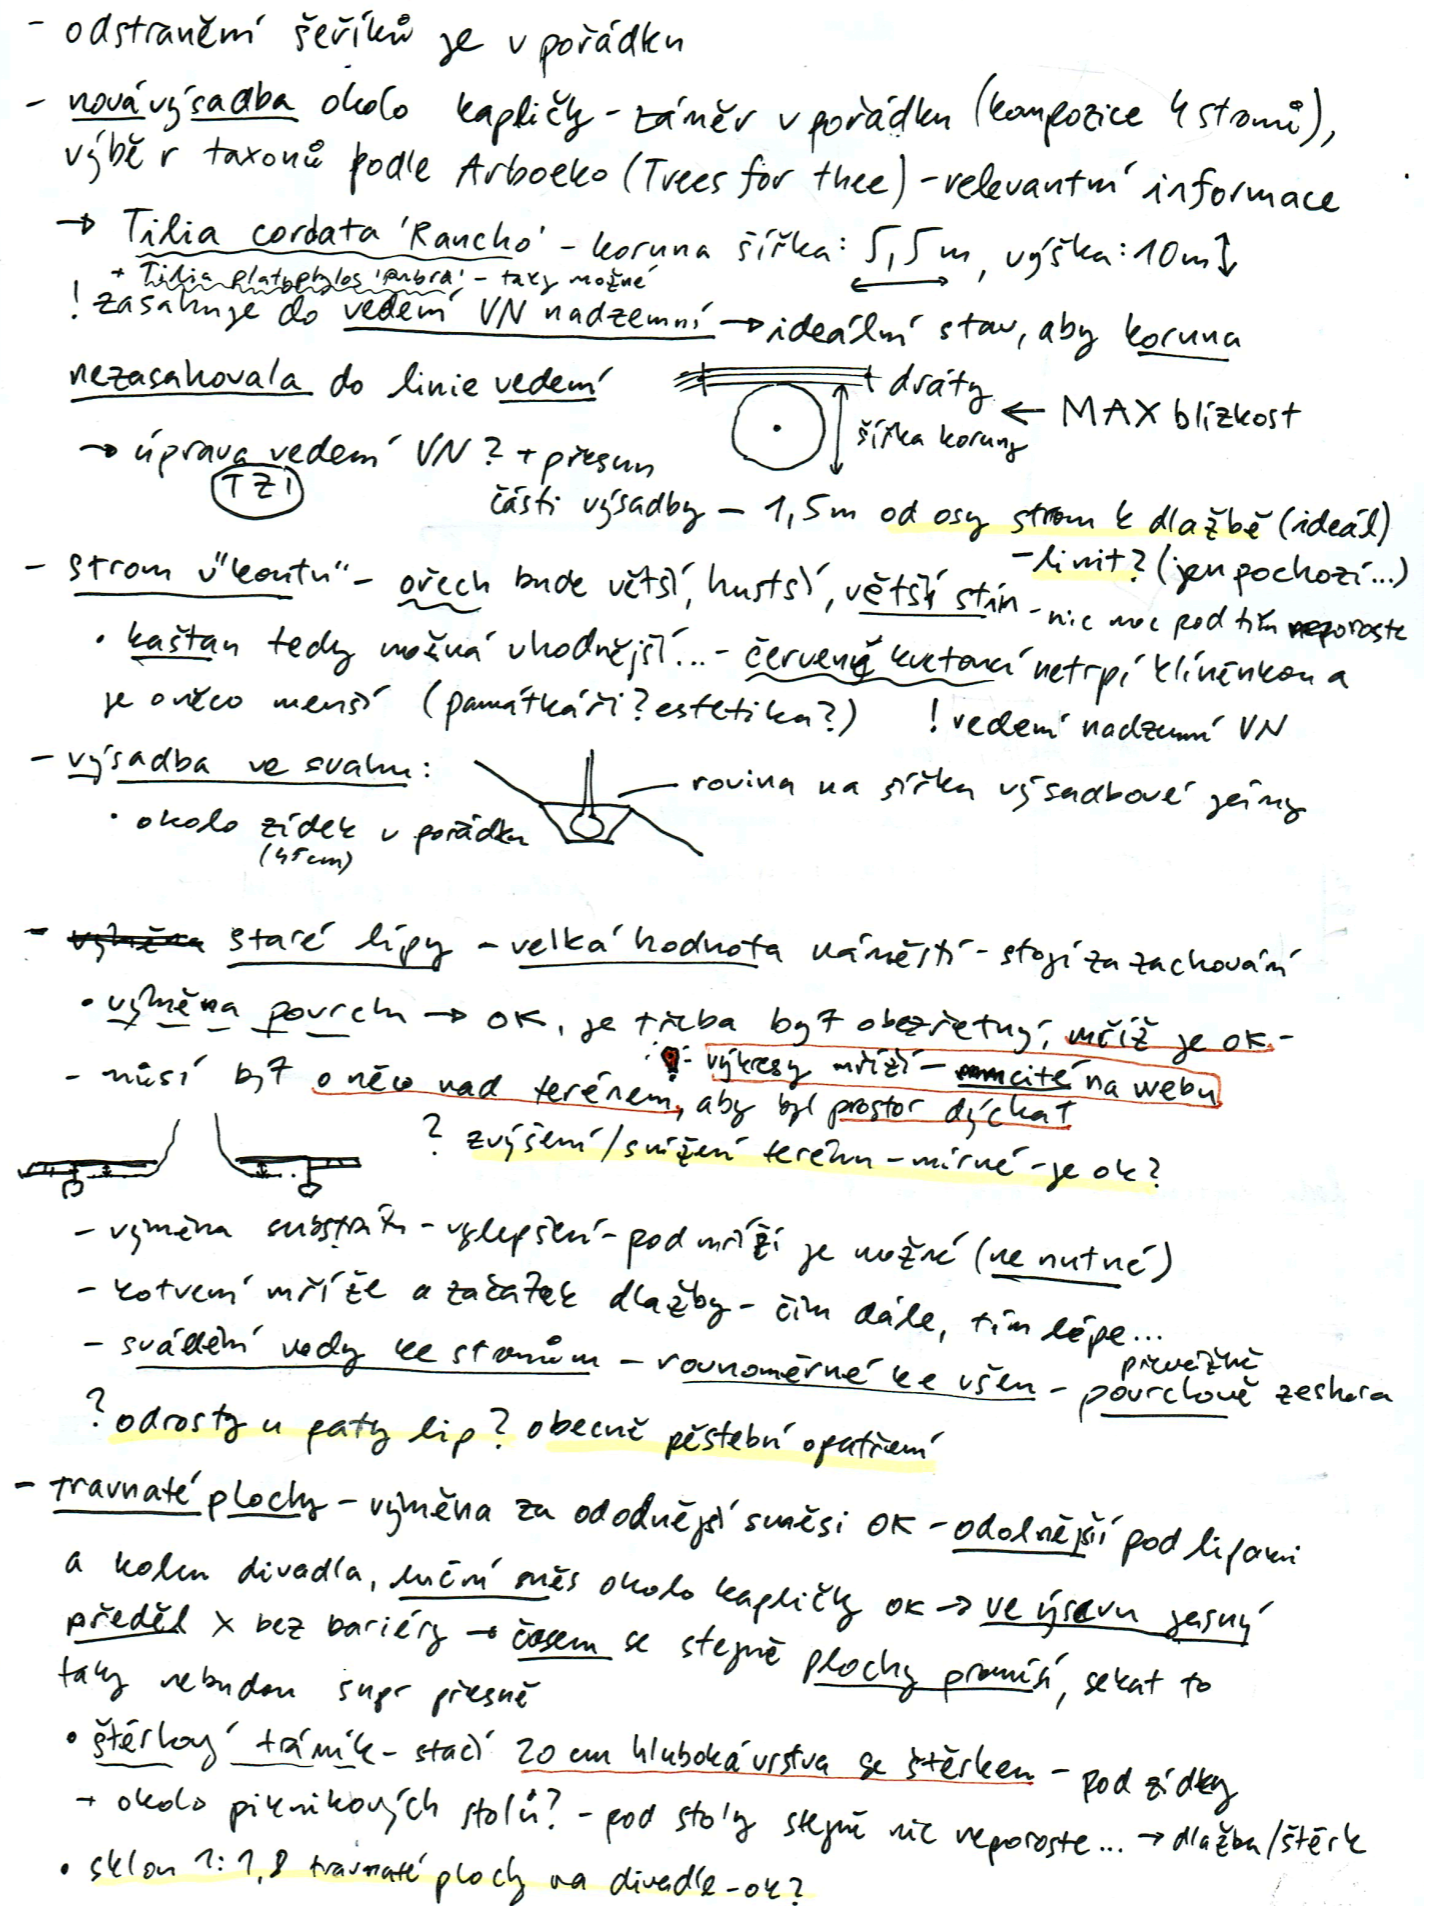 - odstranění šeříků je v pořádku
- nová výsadba okolo kapličky - záměr v pořádku (kompozice 4 stromů),
výběr taxonů podle Arboeko (Trees for thee) - relevantní informace
→ Tilia cordata 'Rancho' - koruna šířka: 5,5m, výška: 10m
+ Tilia platyphylos 'rubra' - taky možné
! zasahuje do vedení VN nadzemní → ideální stav, aby koruna
nezasahovala do linie vedení
dráty
← MAX blízkost
šířka koruny
→ úprava vedení VN? + přesun
TZI
části výsadby - 1,5m od osy strom k dlažbě (ideál)
- limit? (jen pochozí...)
- strom v "koutu" - ořech bude větší, hustší, větší stín - nic moc pod tím neporoste
• kaštan tedy možná vhodnější... - červeně kvetoucí netrpí klíněnkou a
je o něco menší (památkáři? estetika?) ! vedení nadzemní VN
- výsadba ve svahu:
rovina na šířku výsadbové jámy
• okolo zídek v pořádku
(45cm)
- výměna staré lípy - velká hodnota náměstí - stojí za zachování
• výměna povrchu → OK, je třeba být obezřetný, mříž je OK -
výkresy mříží - určitě na webu
- musí být o něco nad terénem, aby byl prostor dýchat
? zvýšení/snížení terénu - mírné - je ok?
- výměna substrátu - vylepšení - pod mříží je možné (ne nutné)
- kotvení mříže a začátek dlažby - čím dále, tím lépe...
- svádění vody ke stromům - rovnoměrné ke všem - povrchově zeshora
převážně
? odrosty u paty lip? obecně pěstební opatření
- travnaté plochy - výměna za ododnější směsi OK - odolnější pod lipami
a kolem divadla, luční směs okolo kapličky OK → ve výsevu jasný
předěl x bez bariéry → časem se stejně plochy promísí, sekat to
taky nebudou supr přesně
• štěrkový trávník - stačí 20 cm hluboká vrstva se štěrkem - pod zídky
+ okolo piknikových stolů? - pod stoly stejně nic neporoste... → dlažba/štěrk
• sklon 1:1,8 travnaté plochy na divadle - ok?